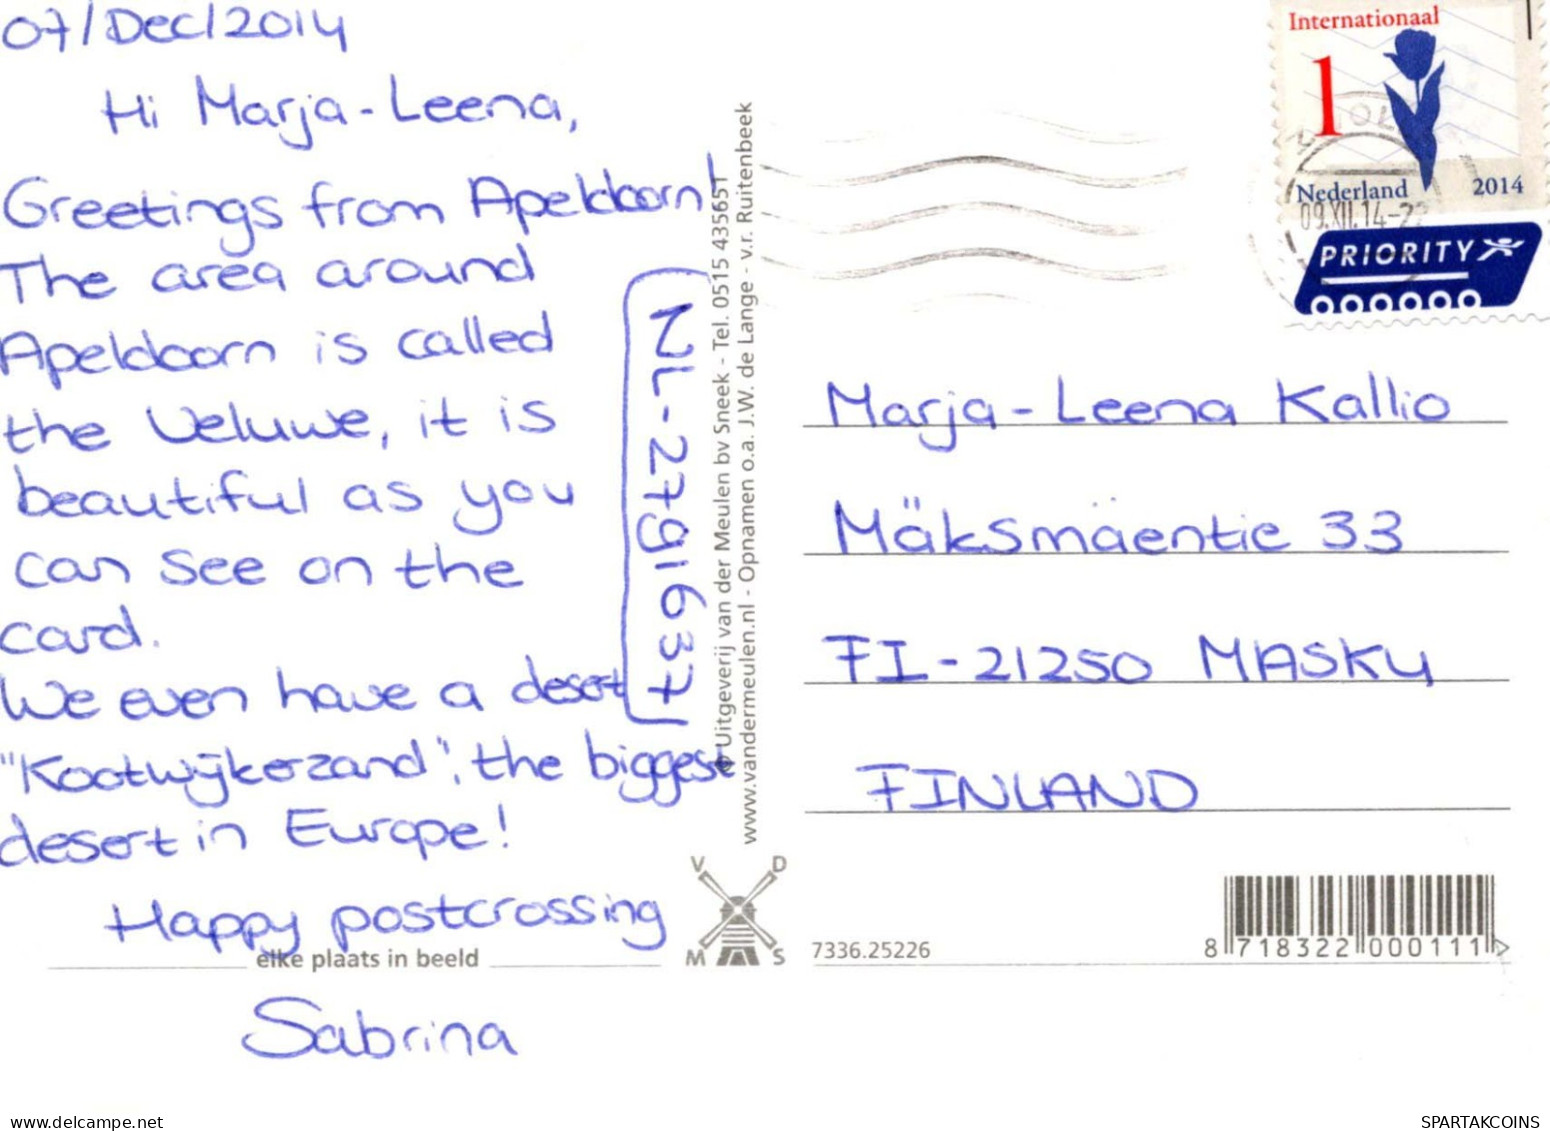 07/Dec/2014
Hi Marja-Leena,
Greetings from Apeldoorn!
The area around
Apeldoorn is called
the Veluwe, it is
beautiful as you
can see on the
card.
We even have a desert
"Kootwijkerzand", the biggest
desert in Europe!
Happy postcrossing
Sabrina
NL-2791637
elke plaats in beeld
© Uitgeverij van der Meulen bv Sneek - Tel. 0515 435651
www.vandermeulen.nl - Opnamen o.a. J.W. de Lange - v.r. Ruitenbeek
V D
M S
Internationaal
1
Nederland 2014
09.XII.14-22
PRIORITY
Marja-Leena Kallio
Mäksmäentie 33
FI-21250 MASKU
FINLAND
7336.25226
8 718322 000111 >
www.delcampe.net
SPARTAKCOINS